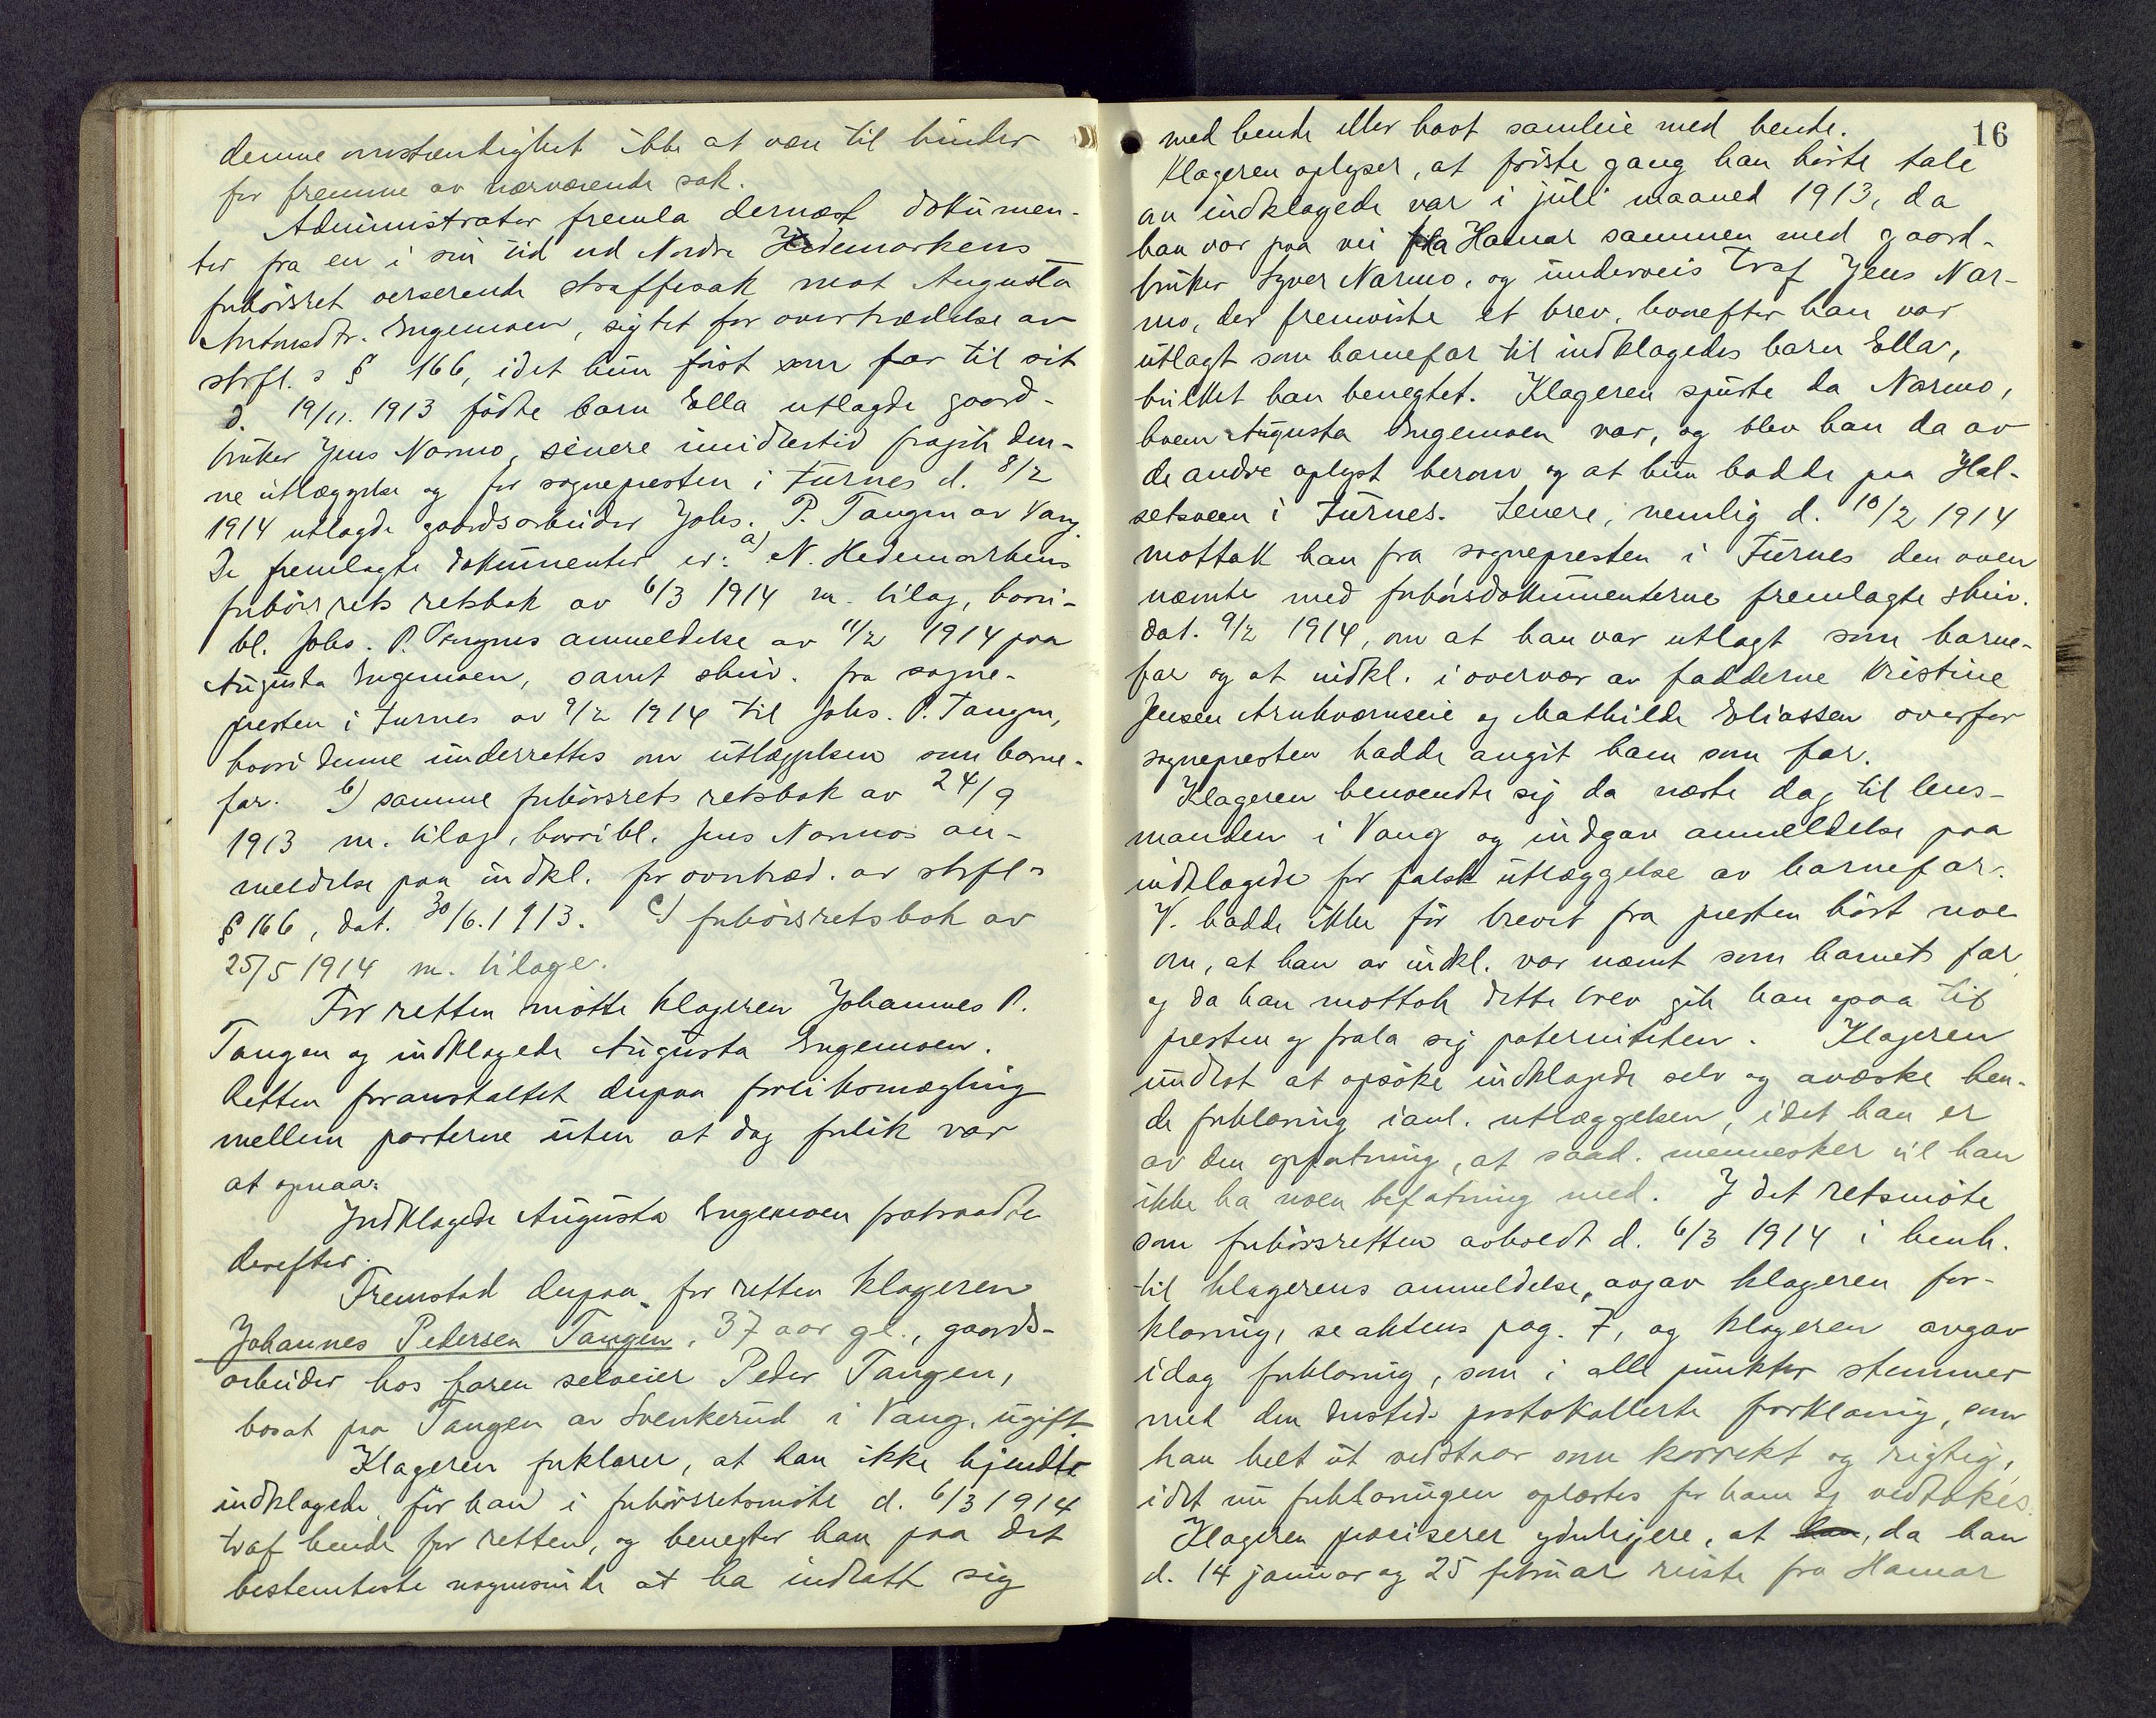 denne omstændighet ikke at være til hinder
for fremme av nærværende sak.
Administrator fremla dernæst dokumen-
ter fra en i sin tid ved Nordre Hedemarkens
forhörsret verserende straffesak mot Augusta
Antonsdtr. Engemoen, sigtet for overtrædelse av
strfl.s § 166, idet hun först som far til sit
d. 19/11. 1913 födte barn Ella utlagde gaard-
bruker Jens Narmo, senere imidlertid fragik den-
ne utlæggelse og for sognepresten i Furnes d. 8/2
1914 utlagde gaardsarbeider Johs. P. Tangen av Vang.
De fremlagte dokumenter er: a) N. Hedemarkens
forhörsrets retsbok av 6/3 1914 m. bilag, hvori-
bl. Johs. P. Tangens anmeldelse av 11/2 1914 paa
Augusta Engemoen, samt skriv. fra sogne-
presten i Furnes av 9/2 1914 til Johs. P. Tangen,
hvori denne underrettes om utlæggelsen som barne-
far. b) samme forhörsrets retsbok av 24/9
1913 m. bilag, hvoribl. Jens Narmos an-
meldelse paa indkl. for overtræd. av strfl.s
§ 166, dat. 30/6. 1913. c) forhörsretsbok av
25/5 1914 m. bilage.
For retten mötte klageren Johannes P.
Tangen og indklagede Augusta Engemoen.
Retten foranstaltet derpaa forliksmægling
mellem parterne uten at dog forlik var
at opnaa.
Indklagede Augusta Engemoen fratraadte
derefter.
Fremstod derpaa for retten klageren
Johannes Pedersen Tangen, 37 aar gl., gaards-
arbeider hos faren selveier Peder Tangen,
bosat paa Tangen av Svenkerud i Vang, ugift.
Klageren forklarer, at han ikke kjendte
indklagede, för han i forhörsretsmöte d. 6/3 1914
traf hende for retten, og benegter han paa det
bestemteste nogensinde at ha indlatt sig
16
med hende eller havt samleie med hende.
Klageren oplyser, at förste gang han hörte tale
om indklagede var i juli maaned 1913, da
han var paa vei fra Hamar sammen med gaard-
bruker Syver Narmo, og underveis traf Jens Nar-
mo, der fremviste et brev, hvorefter han var
utlagt som barnefar til indklagedes barn Ella,
hvilket han benegtet. Klageren spurte da Narmo,
hvem Augusta Engemoen var, og blev han da av
de andre oplyst herom og at hun hadde paa Hal-
setsveen i Furnes. Senere, nemlig d. 10/2 1914
mottok han fra sognepresten i Furnes den oven
nævnte med forhörsdokumenterne fremlagte skriv.
dat. 9/2 1914, om at han var utlagt som barne-
far og at indkl. i overvær av fadderne Kristine
Jensen Arnkværnseie og Mathilde Eliassen overfor
sognepresten hadde angit ham som far.
Klageren henvendte sig da næste dag til lens-
manden i Vang og indgav anmeldelse paa
indklagede for falsk utlæggelse av barnefar.
V. hadde ikke för brevet fra presten hört noe
om, at han av indkl. var nævnt som barnets far
og da han mottok dette brev gik han ogsaa til
presten og frala sig paterniteten. Klageren
undlot at opsöke indklagede selv og avæske hen-
de forklaring i anl. utlæggelsen, idet han er
av den opfatning, at saad. mennesker vil han
ikke ha noen befatning med. I det retsmöte
som forhörsretten avholdt d. 6/3 1914 i henh.
til klagerens anmeldelse, avgav klageren for-
klaring, se aktens pag. 7, og klageren avgav
idag forklaring, som i alle punkter stemmer
med den dersteds protokollerte forklaring, som
han helt ut vedstaar som korrekt og rigtig,
idet nu forklaringen oplæstes for ham og vedtokes.
Klageren præciserer yderligere, at han, da han
d. 14 januar og 25 februar reiste fra Hamar